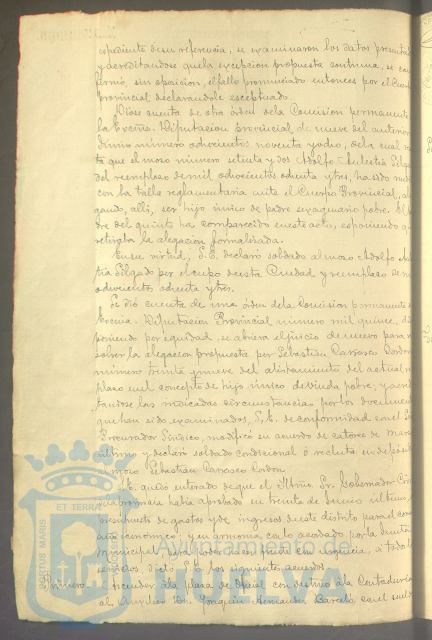 espediente de su referencia, se examinaron los datos presenta
y acreditandose que la excepcion propuesta continua, se con
firmó, sin oposicion, el fallo pronunciado entonces por el Cuerpo
Provincial declarandole esceptuado.
Diose cuenta de otra órden de la Comision permanente
la Excma. Diputacion provincial de nueve del anterior
número ochocientos noventa y ocho, de la cual re
ta que el mozo número setenta y dos Adolfo Delgado
del reemplazo de mil ochocientos ochenta y tres, ha sido
con la talla reglamentaria ante el Cuerpo Provincial, al
gando, allí, ser hijo único de padre sexagenario pobre. El
dre del quinto ha comparecido en este acto, esponiendo q
retiraba la alegacion formalizada.
En su virtud, S.E. declaró soldado al mozo Adolfo
tia Delgado por el cupo de esta Ciudad y reemplazo de mi
ochocientos ochenta y tres.
Se dió cuenta de una órden de la Comision permanente de
Excma. Diputacion Provincial número mil quince, dis
poniendo por equidad, se abriera el juicio de nuevo para re
solver la alegacion propuesta por Sebastian Carrasco Cordon
número treinta y nueve del alistamiento del actual
plazo en el concepto de hijo único de viuda pobre; y
tandose las indicadas circunstancias por los documen
que han sido examinados, S.E. de conformidad con el Sr.
Procurador Síndico, modificó su acuerdo de catorce de Marzo
último y declaró soldado condicional ó recluta en depósito
al mozo Sebastian Carrasco Cordon.
S.E. quedó enterado de que el Iltmo. Sr. Gobernador Civ
de la provincia habia aprobado en treinta de Junio último
presupuesto de gastos y de ingresos de este distrito para el
año económico; y en armonia con lo acordado por la Junta
municipal para
servicios, dictó S.E. los siguientes acuerdos
Primero. Ascender á la plaza de Oficial con destino á la Contaduria
al Auxiliar Dn. Joaquin Hernandez Barceló con el sueld
PORTUS MARIS
ET TERRAE
Ayuntamiento de
HUELVA